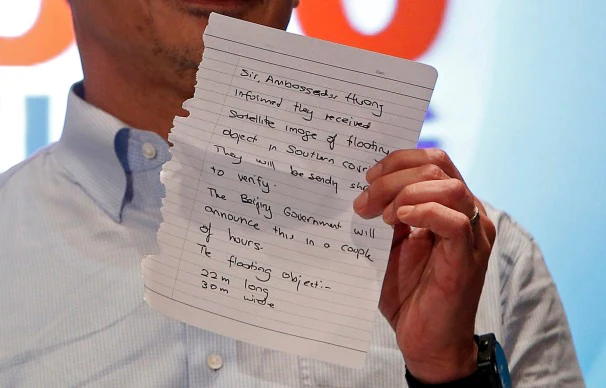 Sir, Ambassador Huang
informed they received
Satellite image of floating
object in Southern corri
They will be sendg
to verify.
The Beijing Government will
announce this in a couple
of hours.
The floating object:-
22m long
30m wide